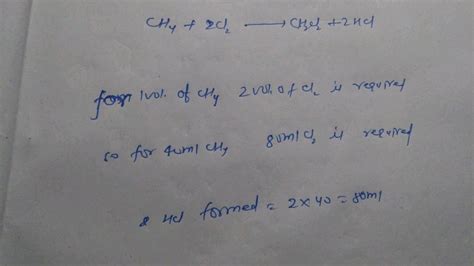 CH4 + 2Cl2 → CH2Cl2 + 2HCl
for 1 vol. of CH4 2 vol. of Cl2 is required
so for 40ml CH4 80ml Cl2 is required
& HCl formed = 2×40 = 80ml